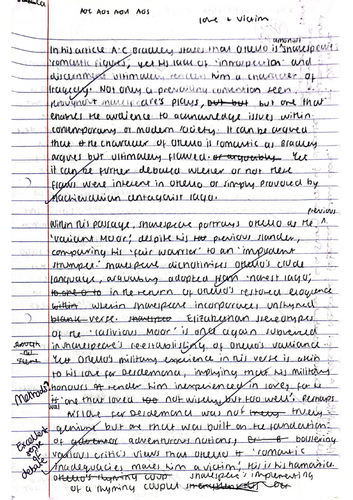 AOE AOS AOU AOS
love & victim
amongst
In his article A.C. Bradley states that Othello is Shakespeare's
romantic figures, yet his lack of 'introspection' and
discernment ultimately renders him a character of
tragedy. Not only a prevailing convention seen
throughout Shakespeare's plays, but one that
enables the audience to acknowledge issues within
contemporary or modern society. It can be argued
that the character of Othello is romantic as Bradley
argues but ultimately flawed Yet
it can be further debated wether or not these
flaws were inherent in Othello or simply provoked by
Machiavellian antagonist Iago.
previous
Within this passage, Shakespeare portrays Othello as the
'valiant Moor', despite his previous slander,
comparing his 'fair warrior' to an 'impudent
strumpet'. Shakespeare dichotomises Othello's crude
language, arguably adopted from 'honest Iago',
to the return of Othello's restored eloquence
wherein Shakespeare incorporates unrhymed
blank verse. Elizabethan stereotypes
of the 'lascivious Moor' is only again subverted
in Shakespeare's reestablishing of Othello's valiance.
Yet Othello's military experience in this verse is akin
to his love for Desdemona, implying that his military
Methods
honours render him inexperienced in love; for he
is 'one that loved not wisely but too well'. Perhaps
his love for Desdemona was not truely
genuine but one that was built on the foundation
of adventurous notions, bolstering
Excellent
debate
various critic's views that Othello 'romantic
inadequacies makes him a victim'. His is his hamartia
Shakespeare's implementing
of a rhyming couplet